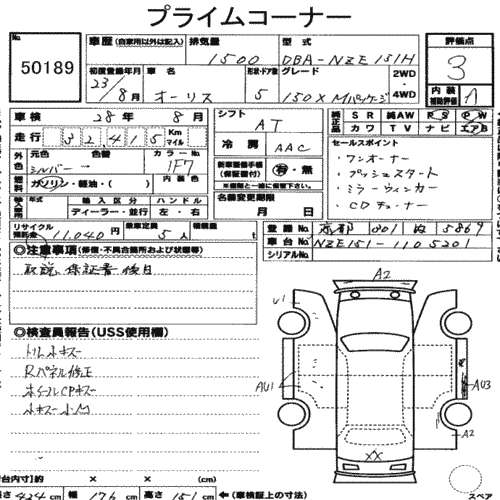 プライムコーナー
No.
50189
車歴 (自家用以外は記入)
排気量
1500
型式
DBA-NZE151H
初度登録年月
23/8月
車名
オーリス
形状・ドア数
5
グレード
150X Mパッケージ
2WD
4WD
評価点
3
内装
補助評価
A
車検
28年 8月
走行
32415
Km
マイル
シフト
AT
冷房
AAC
純正品
SR 純AW PS PW
カワ TV ナビ エアB
外色
元色
シルバー
色替
→
カラーNo.
1F7
燃料
ガソリン・軽油・( )
内装色
新車整備手帳
(保証書付)
有・無
※複数と一緒に保管下さい。
セールスポイント
・ワンオーナー
・プッシュスタート
・ミラーウィンカー
・CDチューナー
輸入車用
輸入区分
ハンドル
ディーラー・並行
左・右
名義変更期限
月 日
リサイクル
預託金
11,040円
乗車定員
5人
積載量
t
登録No.
京都 001 ぬ 5869
車台No.
NZE151-1105201
シリアルNo.
◎注意事項(修復・不具合箇所および状態等)
取説、保証書 後日
◎検査員報告(USS使用欄)
トリムキズ
Rパネル修正
ホイールCPキズ
小キズ小凹
A2
U1
AU1
AU3
A2
XX
台内寸) × × (cm)
長さ 424 cm 幅 176 cm 高さ 151 cm (車検証上の寸法)
スペア